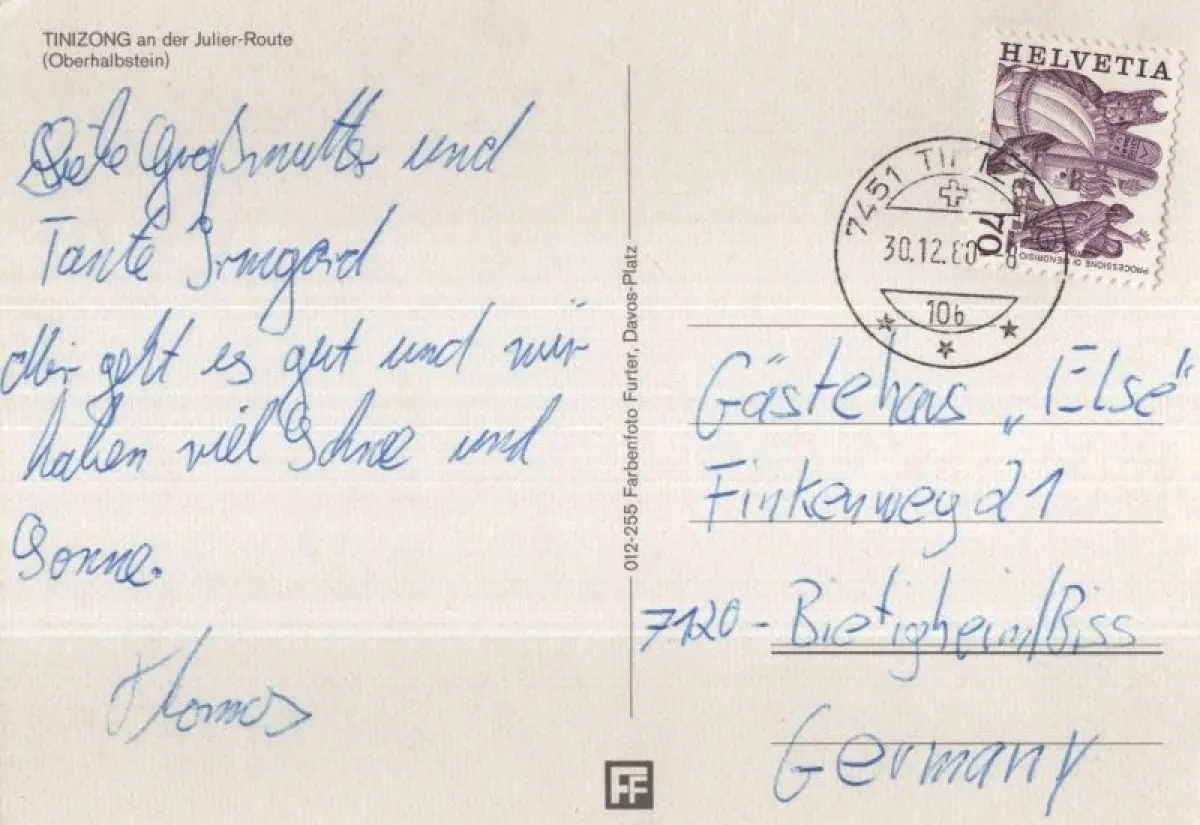 TINIZONG an der Julier-Route
(Oberhalbstein)
Liebe Großmutter und
Tante Irmgard
Mir geht es gut und wir
haben viel Schnee und
Sonne.
Thomas
012-255 Farbenfoto Furter, Davos-Platz
FF
HELVETIA
70
PROCESSIONE DI MENDRISIO
7451 TIN
30.12.80-8
10b
Gästehaus „Else"
Finkenweg 21
7120 - Bietigheim/Biss
Germany